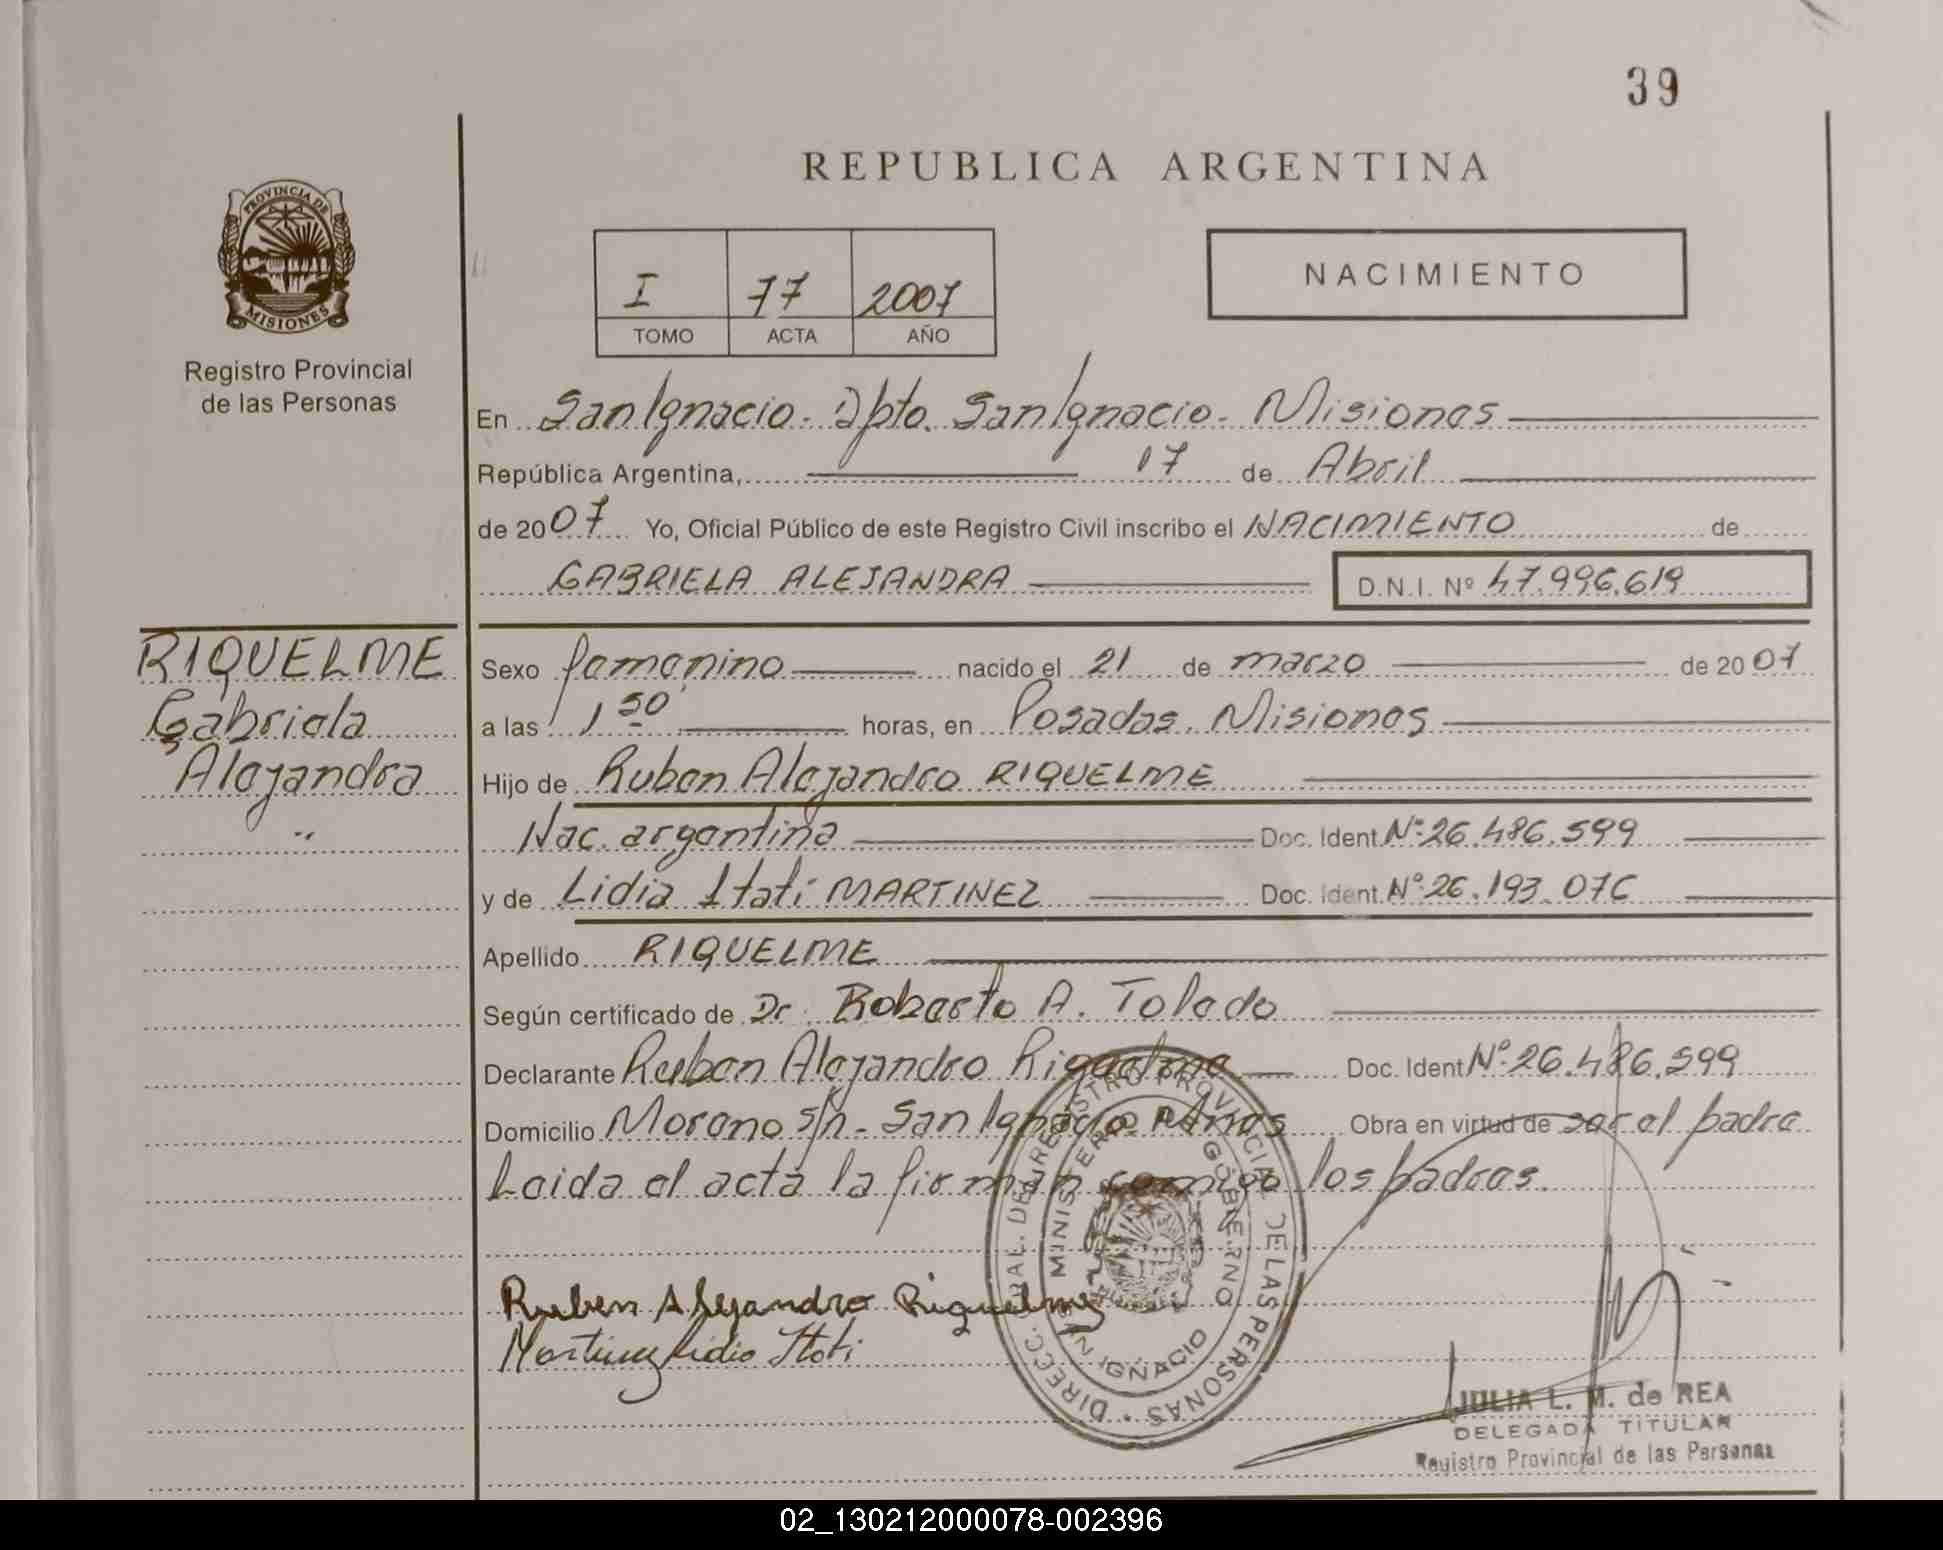 39
REPUBLICA ARGENTINA
PROVINCIA DE
MISIONES
Registro Provincial
de las Personas
I 77 2007
TOMO ACTA AÑO
NACIMIENTO
En San Ignacio - Dpto. San Ignacio - Misiones
República Argentina, 17 de Abril
de 2007 Yo, Oficial Público de este Registro Civil inscribo el NACIMIENTO de
GABRIELA ALEJANDRA D.N.I. Nº 47.996.619
RIQUELME
Gabriela
Alejandra
"
Sexo femenino nacido el 21 de marzo de 2007
a las 1 50' horas, en Posadas. Misiones
Hijo de Ruben Alejandro RIQUELME
Nac. argentina Doc. Ident. Nº 26.486.599
y de Lidia Itatí MARTINEZ Doc. Ident. Nº 26.193.076
Apellido RIQUELME
Según certificado de Dr. Roberto A. Toledo
Declarante Ruben Alejandro Riquelme Doc. Ident Nº 26.486.599
Domicilio Moreno s/n - San Ignacio Mnes Obra en virtud de ser el padre
Leida el acta la firman comigo los padres.
Ruben Alejandro Riquelme
Martinez Lidia Itati
DIRECC. GRAL. DE REGISTRO PROVINCIAL DE LAS PERSONAS
MINISTERIO DE GOBIERNO
SAN IGNACIO
JULIA L. M. de REA
DELEGADA TITULAR
Registro Provincial de las Personas
02_130212000078-002396